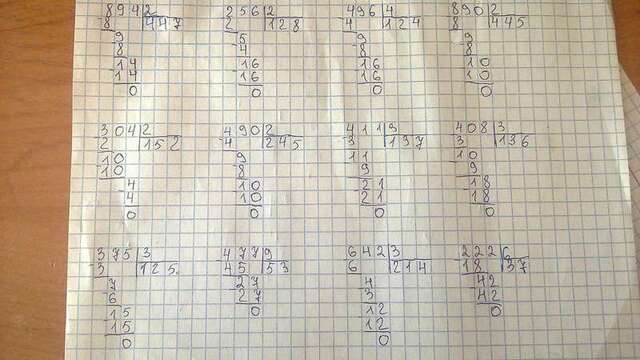 894 2 256 2 496 4 890 2
8 447 2 128 4 124 8 445
9 5 9 9
8 4 8 8
14 16 16 10
14 16 16 10
0 0 0 0
304 2 490 2 411 3 408 3
2 152 4 245 3 137 3 136
10 9 11 10
10 8 9 9
4 10 21 18
4 10 21 18
0 0 0 0
375 3 477 9 642 3 222 6
3 125. 45 53 6 214 18 37
7 27 4 42
6 27 3 42
15 0 12 0
15 12
0 0